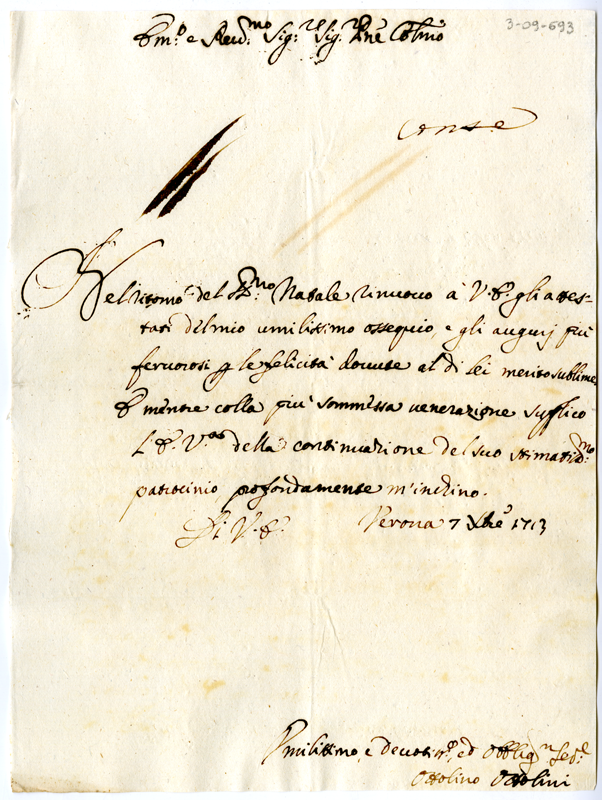 3-09-693
Em.º e Reu.mo Sig.re Sig.re Pne Colmo
Nel ritorno del S.mo Natale rinuovo à V.E. gli attes-
tati del mio umilissimo ossequio, e gli augurj più
fervorosi p le felicità dovute al di lei merito sublime,
E mentre colla più sommessa venerazione supplico
l'E.V.ra della continuazione del suo stimatis.mo
patrocinio profondamente m'inchino.
Di V.E. Verona 7 Xbre 1713
Umilissimo, e devotis.mo, ed Obblig.mo Ser.e
Ottolino Ottolini